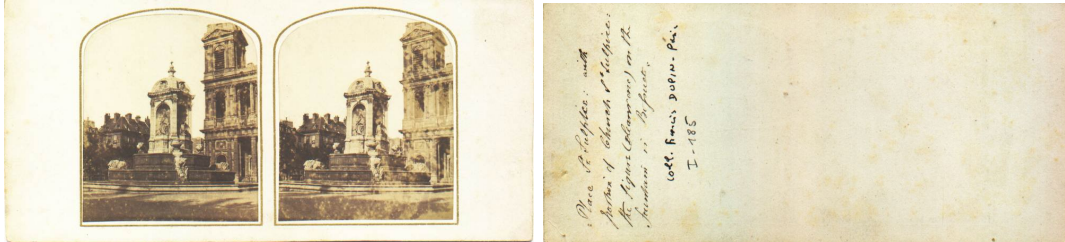 Place St Sulpice: with
portion of Church St Sulpice:
the figure (Colamaus) on the
fountain is Bossuet.
coll. Francis DUPIN - Père.
I-185